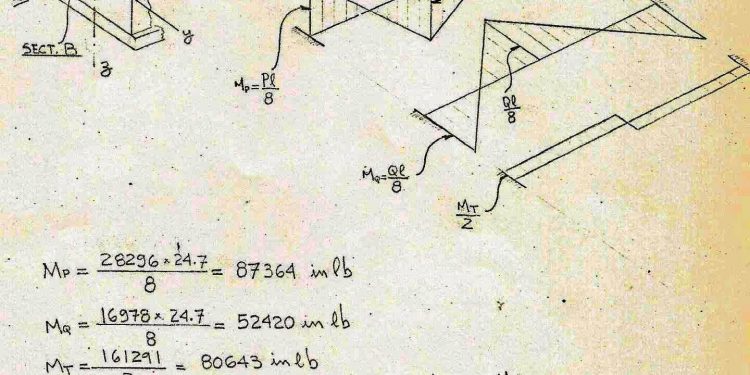 SECT. B
y
z
Mp = Pl/8
Ql/8
MQ = Ql/8
MT/2
Mp = 28296 × 24.7 / 8 = 87364 in lb
MQ = 16978 × 24.7 / 8 = 52420 in lb
MT = 161291 = 80643 in lb